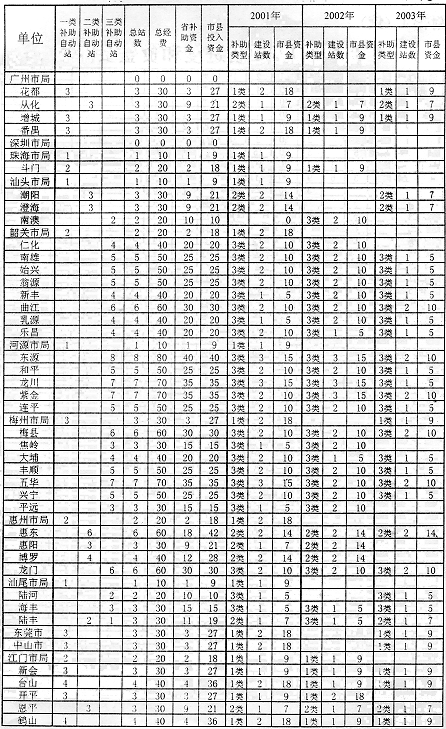 单位 一类补助自动站 二类补助自动站 三类补助自动站 总站数 总经费 省补助资金 市县投入资金 2001年 2002年 2003年
补助类型 建设站数 市县资金 补助类型 建设站数 市县资金 补助类型 建设站数 市县资金
广州市局 0 0 0 0
花都 3 3 30 3 27 1类 2 18 1类 1 9
从化 3 3 30 9 21 2类 1 7 2类 1 7 2类 1 7
增城 3 3 30 3 27 1类 1 9 1类 1 9 1类 1 9
番禺 3 3 30 3 27 1类 2 18 1类 1 9
深圳市局 0 0 0 0
珠海市局 1 1 10 1 9 1类 1 9
斗门 2 2 20 2 18 1类 1 9 1类 1 9
汕头市局 1 1 10 1 9 1类 1 9
潮阳 3 3 30 9 21 2类 2 14 2类 1 7
澄海 3 3 30 9 21 2类 2 14 2类 1 7
南澳 2 2 20 10 10 0 3类 2 10
韶关市局 2 2 20 2 18 1类 2 18
仁化 4 4 40 20 20 3类 2 10 3类 2 10
南雄 5 5 50 25 25 3类 2 10 3类 2 10 3类 1 5
始兴 5 5 50 25 25 3类 2 10 3类 2 10 3类 1 5
翁源 5 5 50 25 25 3类 2 10 3类 2 10 3类 1 5
新丰 4 4 40 20 20 3类 1 5 3类 2 10 3类 1 5
曲江 6 6 60 30 30 3类 2 10 3类 2 10 3类 2 10
乳源 4 4 40 20 20 3类 1 5 3类 2 10 3类 1 5
乐昌 4 4 40 20 20 3类 2 10 3类 1 5 3类 1 5
河源市局 1 1 10 1 9 1类 1 9
东源 8 8 80 40 40 3类 3 15 3类 3 15 3类 2 10
和平 5 5 50 25 25 3类 2 10 3类 2 10 3类 1 5
龙川 7 7 70 35 35 3类 3 15 3类 3 15 3类 1 5
紫金 7 7 70 35 35 3类 2 10 3类 3 15 3类 2 10
连平 5 5 50 25 25 3类 2 10 3类 2 10 3类 1 5
梅州市局 3 3 30 3 27 1类 2 18 1类 1 9
梅县 6 6 60 30 30 3类 2 10 3类 2 10 3类 2 10
焦岭 3 3 30 15 15 3类 1 5 3类 2 10
大埔 4 4 40 20 20 3类 2 10 3类 1 5 3类 1 5
丰顺 5 5 50 25 25 3类 2 10 3类 2 10 3类 1 5
五华 7 7 70 35 35 3类 3 15 3类 2 10 3类 2 10
兴宁 5 5 50 25 25 3类 2 10 3类 2 10 3类 1 5
平远 3 3 30 15 15 3类 1 5 3类 2 10
惠州市局 2 2 20 2 18 1类 2 18
惠东 6 6 60 18 42 2类 2 14 2类 2 14 2类 2 14
惠阳 3 3 30 9 21 2类 1 7 2类 2 14
博罗 4 4 40 12 28 2类 2 14 2类 2 14
龙门 6 6 60 30 30 3类 2 10 3类 2 10 3类 2 10
汕尾市局 1 1 10 1 9 1类 1 9
陆河 2 2 20 10 10 3类 1 5 3类 1 5
海丰 3 3 30 15 15 3类 1 5 3类 1 5 3类 1 5
陆丰 2 1 3 30 11 19 2类 1 7 3类 1 5 2类 1 7
东莞市 3 3 30 3 27 1类 2 18 1类 1 9
中山市 3 3 30 3 27 1类 2 18 1类 1 9
江门市局 2 2 20 2 18 1类 1 9 1类 1 9
新会 3 3 30 3 27 1类 1 9 1类 1 9 1类 1 9
台山 4 4 40 4 36 1类 2 18 1类 1 9 1类 1 9
开平 3 3 30 3 27 1类 1 9 1类 2 18
恩平 3 3 30 9 21 2类 1 7 2类 1 7 2类 1 7
鹤山 4 4 40 4 36 1类 2 18 1类 1 9 1类 1 9